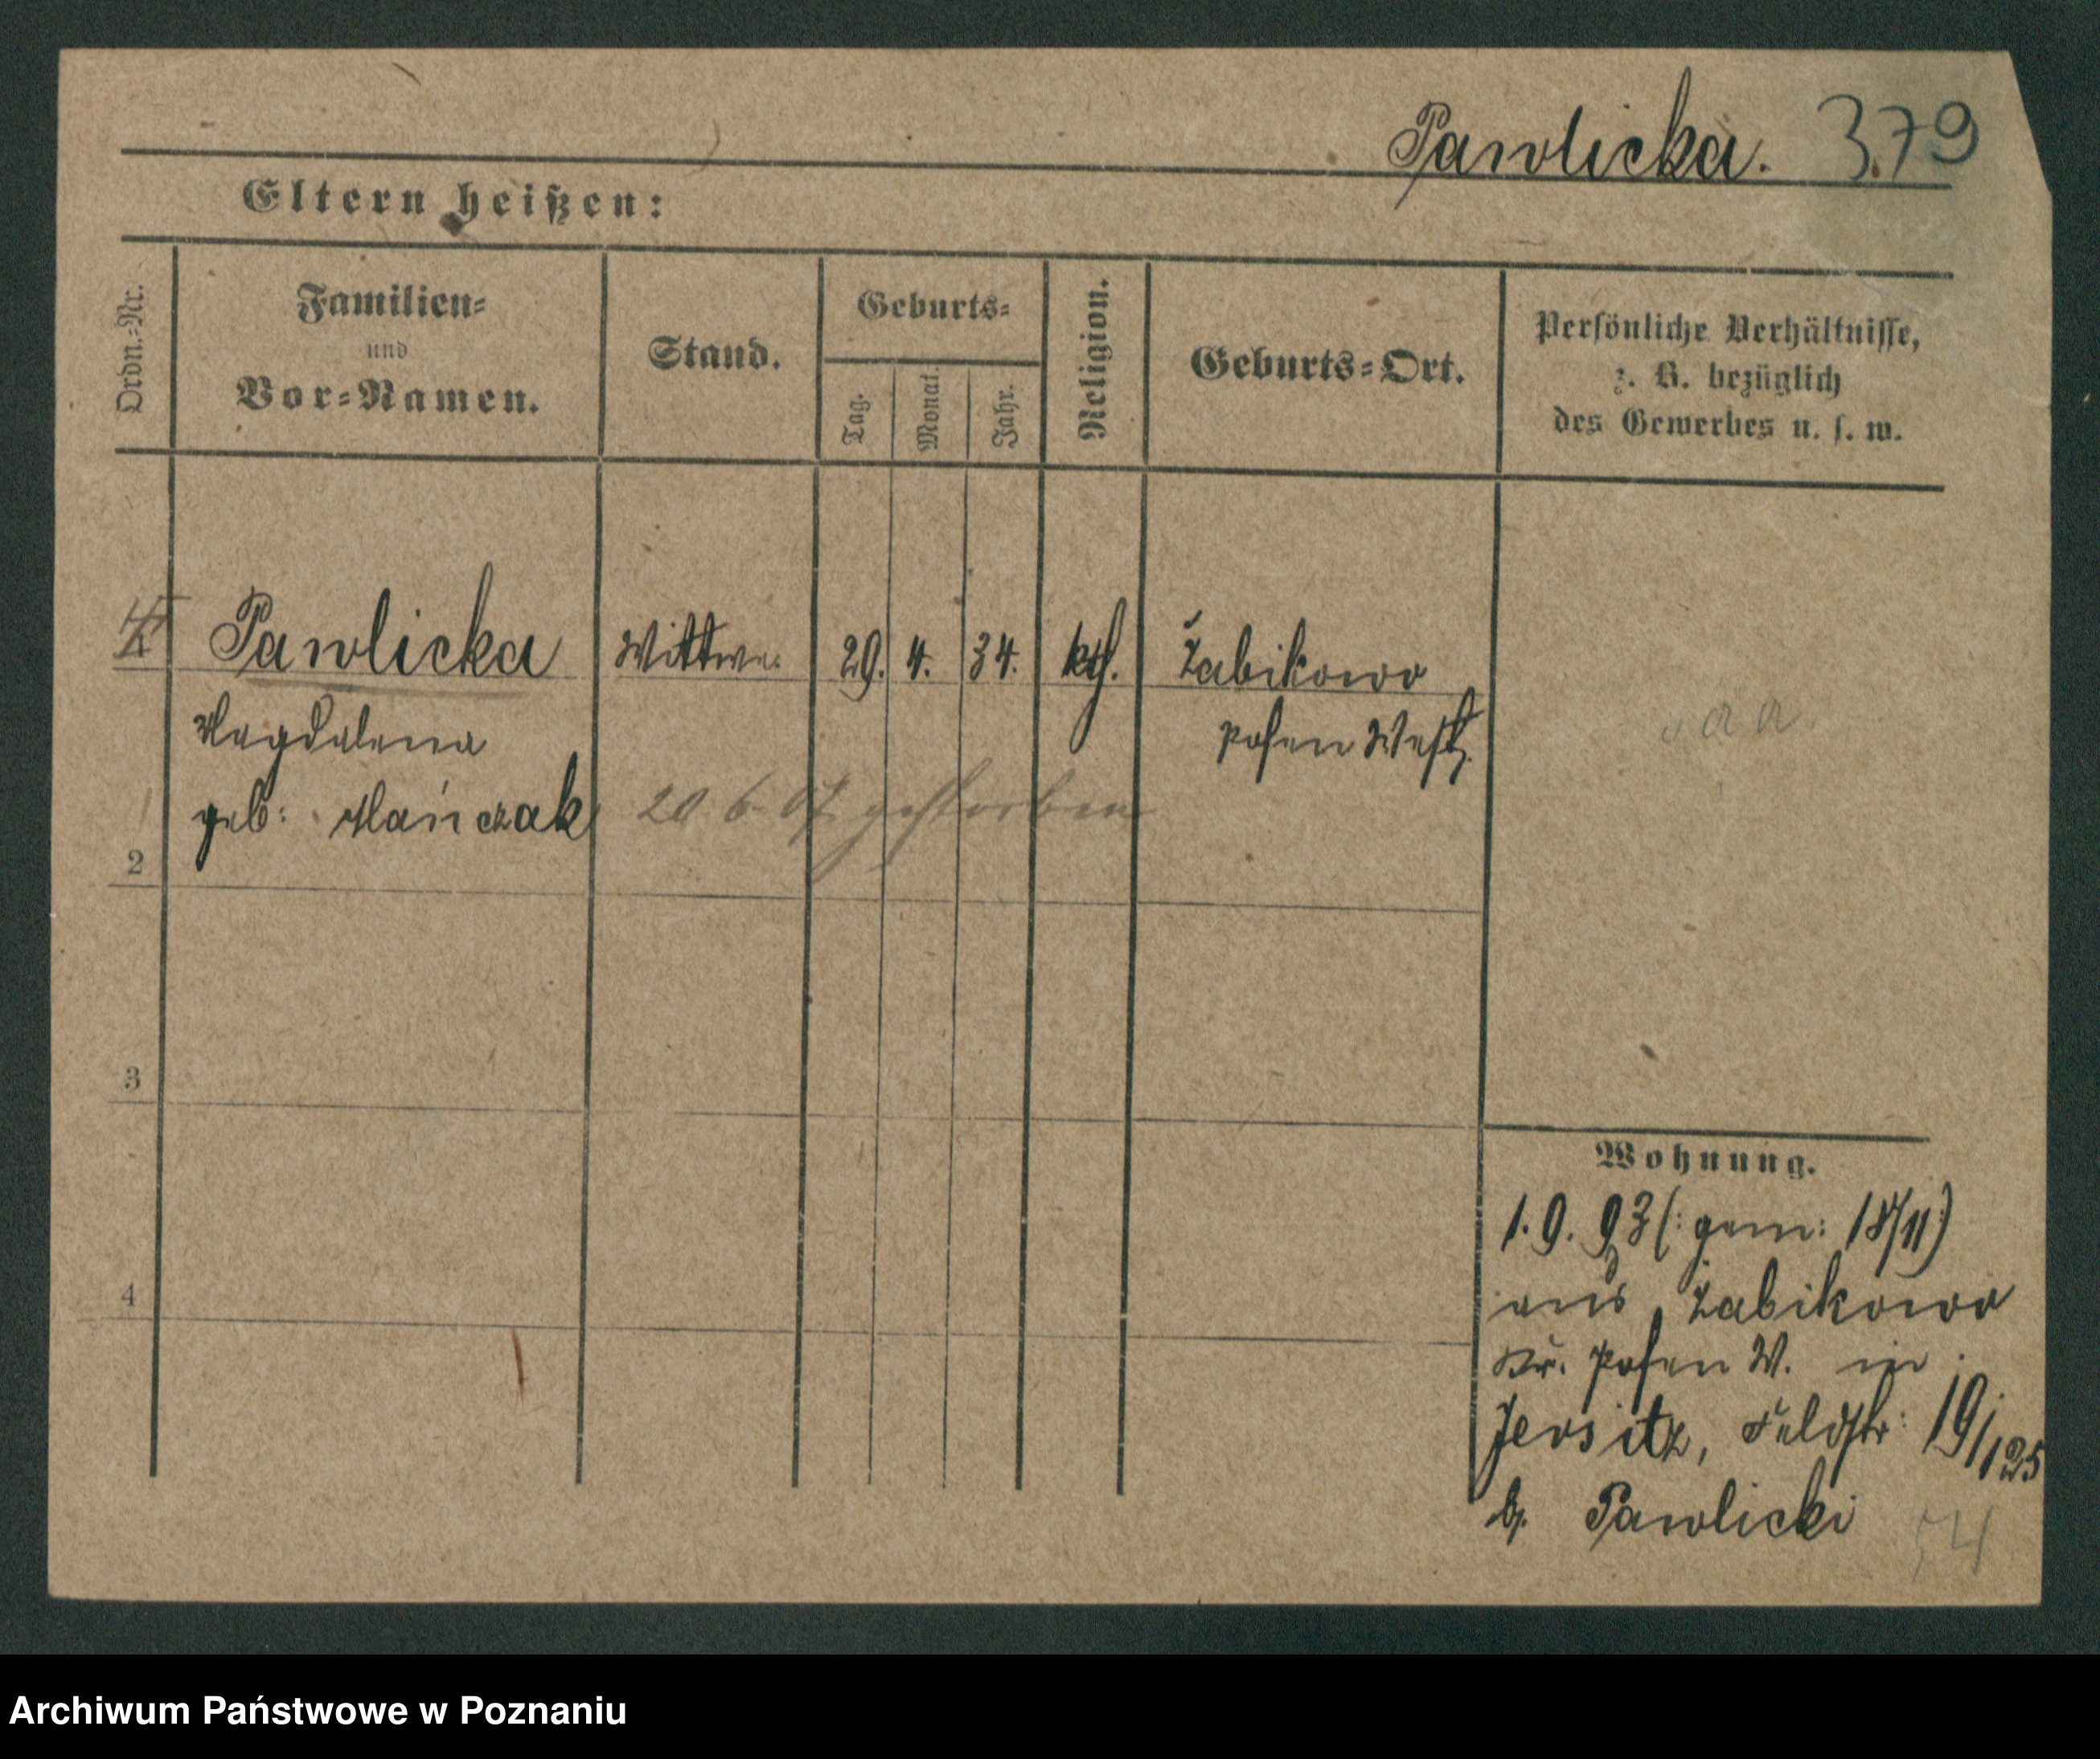 Pawlicka. 379
Eltern heißen:
Ordn.-Nr.
Familien-
und
Vor-Namen.
Stand.
Geburts-
Tag.
Monat.
Jahr.
Religion.
Geburts-Ort.
Persönliche Verhältnisse,
z. B. bezüglich
des Gewerbes u. s. w.
Pawlicka Wittwe. 29. 4. 34. kth. Żabikowo
Magdalena Posen West.
geb: Mańczak 20. 6. 07. gestorben
2
3
4
Wohnung.
1. 9. 93 (: gem: 18/11)
aus Żabikowo
Kr. Posen W. in
Jersitz, Feldstr: 19/125
b. Pawlicki 74
Archiwum Państwowe w Poznaniu